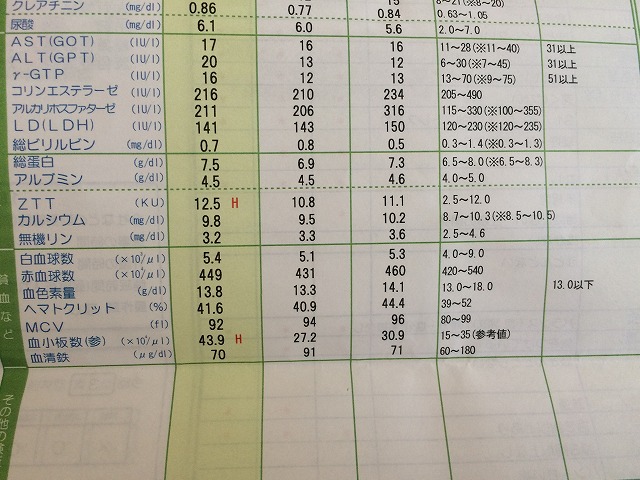 クレアチニン (mg/dl) 0.86 0.77 0.84 0.63~1.05
尿酸 (mg/dl) 6.1 6.0 5.6 2.0~7.0
AST(GOT) (IU/l) 17 16 16 11~28(※11~40) 31以上
ALT(GPT) (IU/l) 20 13 12 6~30(※7~45) 31以上
γ-GTP (IU/l) 16 12 13 13~70(※9~75) 51以上
コリンエステラーゼ (IU/l) 216 210 234 205~490
アルカリホスファターゼ (IU/l) 211 206 316 115~330(※100~355)
LD(LDH) (IU/l) 141 143 150 120~230(※120~235)
総ビリルビン (mg/dl) 0.7 0.8 0.5 0.3~1.4(※0.3~1.3)
総蛋白 (g/dl) 7.5 6.9 7.3 6.5~8.0(※6.5~8.3)
アルブミン (g/dl) 4.5 4.5 4.6 4.0~5.0
ZTT (KU) 12.5 H 10.8 11.1 2.5~12.0
カルシウム (mg/dl) 9.8 9.5 10.2 8.7~10.3(※8.5~10.5)
無機リン (mg/dl) 3.2 3.3 3.6 2.5~4.6
貧血など
白血球数 (×10³/μl) 5.4 5.1 5.3 4.0~9.0
赤血球数 (×10⁴/μl) 449 431 460 420~540
血色素量 (g/dl) 13.8 13.3 14.1 13.0~18.0 13.0以下
ヘマトクリット (%) 41.6 40.9 44.4 39~52
MCV (fl) 92 94 96 80~99
血小板数(参) (×10⁴/μl) 43.9 H 27.2 30.9 15~35(参考値)
血清鉄 (μg/dl) 70 91 71 60~180
その他の